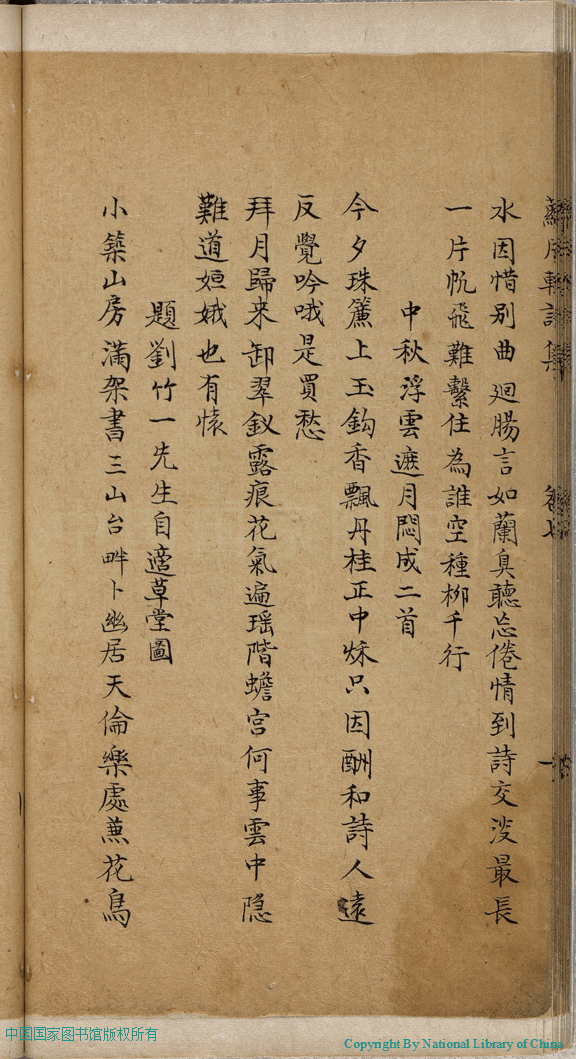 水因惜别曲廻腸言如蘭臭聽忘倦情到詩交淡最長
一片帆飛難繫住為誰空種栁千行
中秋浮雲遮月悶成二首
今夕珠簾上玉鈎香飄丹桂正中秌只因酬和詩人遠
反覺吟哦是買愁
拜月歸来卸翠釵露痕花氣遍瑶階蟾宫何事雲中隐
難道姮娥也有懷
題劉竹一先生自適草堂圖
小築山房滿架書三山台畔卜幽居天倫樂處蕙花鳥
中国国家图书馆版权所有
Copyright By National Library of China